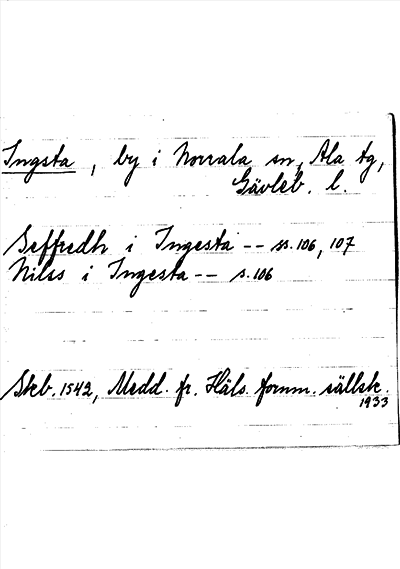 Ingsta, by i Norrala sn, Ala tg,
Gävleb. l.
Seffredh i Ingesta -- ss. 106, 107
Nilss i Ingesta -- s. 106
Skb. 1542, Medd. fr. Häls. fornm. sällsk.
1933